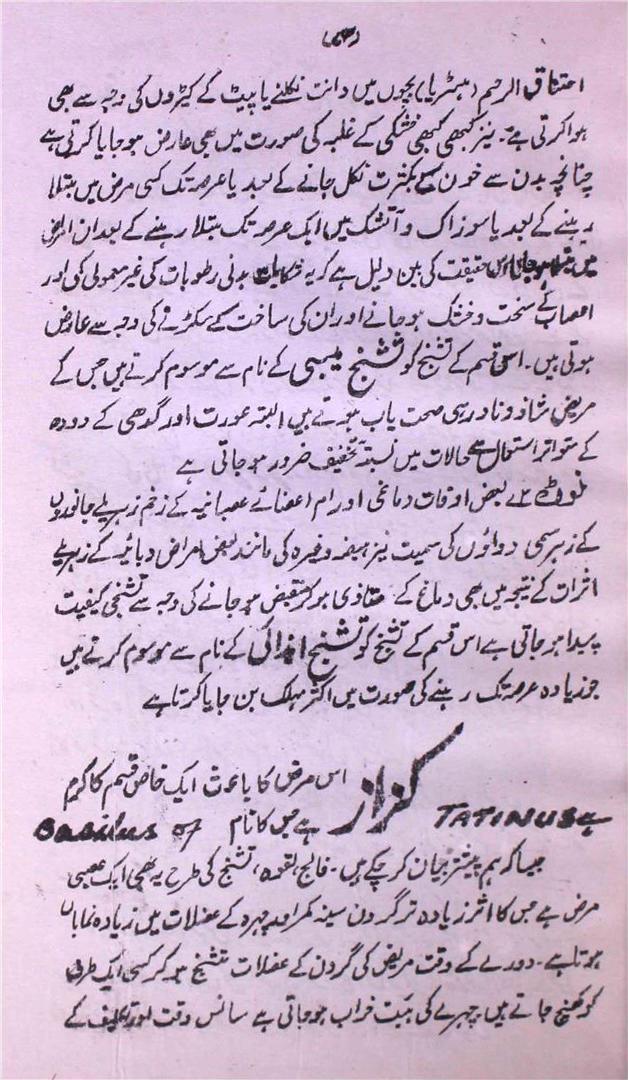 احتناق الرحم (ہسٹریا) بچوں میں دانت نکلنے یا پیٹ کے کیڑوں کی وجہ سے بھی
ہوا کرتی ہے۔ نیز کبھی کبھی خشکی کے غلبہ کی صورت میں بھی عارض ہو جایا کرتی ہے
چنانچہ بدن سے خون کے بکثرت نکل جانے کے بعد یا عرصہ تک کسی مرض میں مبتلا
رہنے کے بعد یا سوزاک و آتشک میں ایک عرصہ تک مبتلا رہنے کے بعد ان
میں اس حقیقت کی بین دلیل ہے کہ یہ شکایات بدنی رطوبات کی غیر معمولی کمی اور
اعصاب کے سخت و خشک ہو جانے اور ان کی ساخت کے سکڑنے کی وجہ سے عارض
ہوتی ہیں۔ اس قسم کے تشنج کو تشنج یبسی کے نام سے موسوم کرتے ہیں جس کے
مریض شاذ و نادر ہی صحت یاب ہوتے ہیں البتہ عورت اور گدھی کے دودھ
کے متواتر استعمال سے حالات میں نسبتہً تخفیف ضرور ہو جاتی ہے
نوٹ ۲ بعض اوقات دماغی اورام اعضائے عصبانیہ کے زخم زہریلے جانوروں
کے زہر سمی دوائوں کی سمیت نیز ہیضہ وغیرہ کی مانند بعض امراض وبائیہ کے زہریلے
اثرات کے نتیجہ میں بھی دماغ کے متاذی ہو کر منقبض ہو جانے کی وجہ سے تشنجی کیفیت
پیدا ہو جاتی ہے اس قسم کے تشنج کو تشنج ایذائی کے نام سے موسوم کرتے ہیں
جو زیادہ عرصہ تک رہنے کی صورت میں اکثر مہلک بن جایا کرتا ہے
کزاز اس مرض کا باعث ایک خاص قسم کا کرم
ہے جس کا نام Basilus of TATINUS ہے
جیسا کہ ہم پیشتر بیان کر چکے ہیں۔ فالج، لقوہ، تشنج کی طرح یہ بھی ایک عصبی
مرض ہے جس کا اثر زیادہ تر گردن سینہ کمر اور چہرہ کے عضلات میں زیادہ نمایاں
ہوتا ہے۔ دورے کے وقت مریض کی گردن کے عضلات تشنج ہو کر کسی ایک طرف
کو کھنچ جاتے ہیں چہرے کی ہیت خراب ہو جاتی ہے سانس وقت اور تکلیف کے